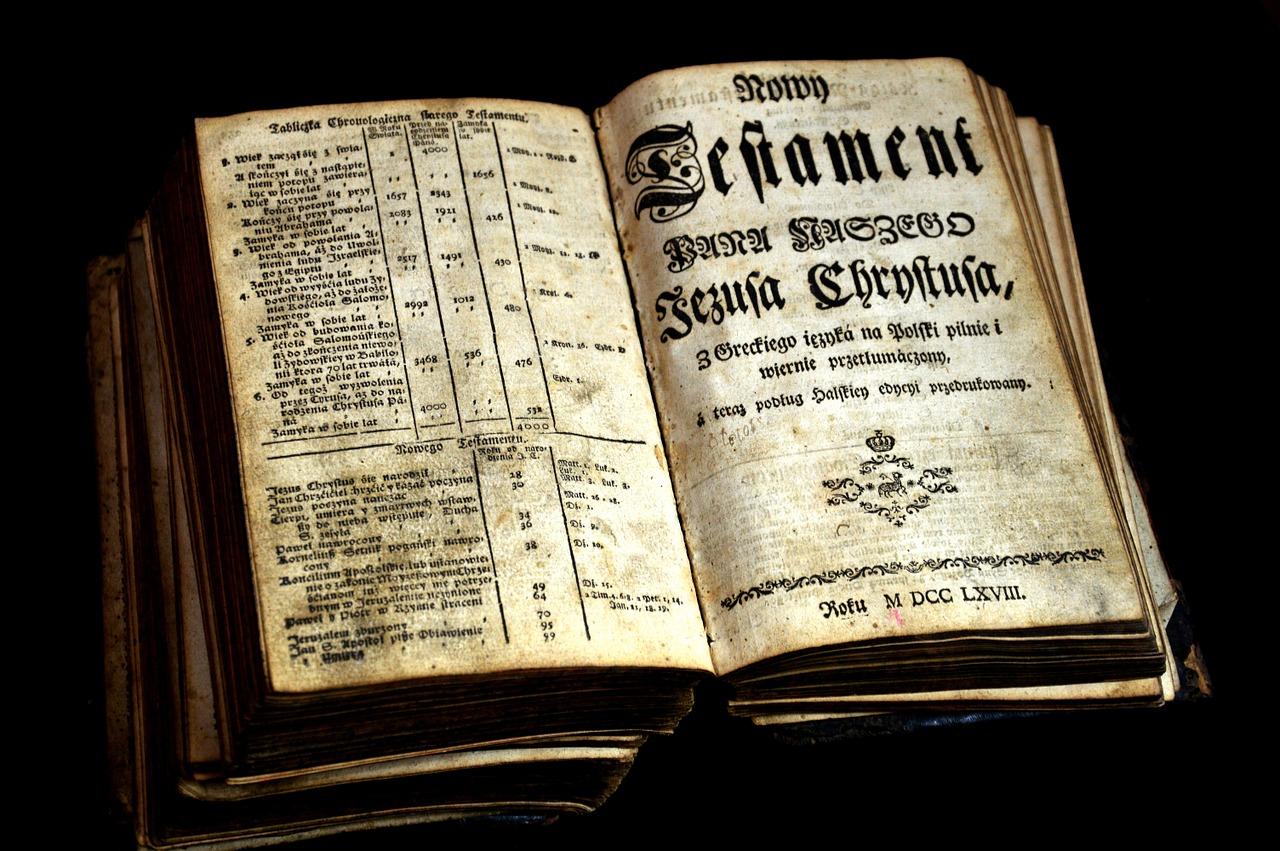 Tabliczka Chronologiczna starego Testamentu.
W Roku Świata. Przed narodzeniem Chrystusa Pána. Zamyka w sobie lat.
1. Wiek zaczął się z świa-
tem 1 4000 1 Moy. 1
A skończył się z nastąpie-
niem potopu zawiera-
iąc w sobie lat 1656
2. Wiek zaczyna się przy
końcu potopu 1657 2343 1 Moy. 8.
Kończy się przy powoła-
niu Abrahama 2083 1921 1 Moy. 12.
Zamyka w sobie lat 426
3. Wiek od powołania A-
brahama, aż do Uwol-
nienia ludu Izraelskie-
go z Egiptu 2517 1491
Zamyka w sobie lat 430
4. Wiek od wyyścia ludu Ży-
dowskiego, aż do założe-
nia Kościoła Salomo-
nowego 2992 1012
Zamyka w sobie lat 480
5. Wiek od budowania ko-
ścioła Salomońskiego
aż do zkończenia niewo-
li Żydowskiey w Babilo-
nii ktora 70 lat trwała, 3468 536
Zamyka w sobie lat 476
6. Od tegoż wyzwolenia Ezdr. 1.
przez Cyrusa, aż do na-
rodzenia Chrystusa Pá-
na 4000
Zamyka w sobie lat 532
4000
Nowego Testamentu.
Roku od naro-
dzenia J. C.
Jezus Chrystus się narodził Matt. 1. Luk. 2.
Jan Chrzciciel chrzcić y kazać poczyna 28
Jezus poczyna nauczać 30
Cierpi, umiera y zmartwych wstaw- Matt. 26 - 28.
szy do nieba wstępuie, Ducha Dz. 1.
S. zsyła 34
Paweł nawrocony 36 Dz. 9.
Korneliusz Setnik pogański nawro-
cony 38 Dz. 10.
Koncilium Apostolskie, lub ustanowie-
nie o zakonie Moyżeszowym Chrze-
ścianom iuż więcey nie potrze-
bnym w Jeruzalemie uczynione 49 Dz. 15.
Paweł y Piotr w Rzymie straceni 64
Jeruzalem zburzony 70
Jan S. Apostoł pisze Obiawienie 95
y umiera 99
Nowy
Testament
PANA NASZEGO
Jezusa Chrystusa,
Z Greckiego ięzyká na Polski pilnie i
wiernie przetłumáczony,
á teraz podług Halskiey edycyi przedrukowany.
Roku M DCC LXVIII.